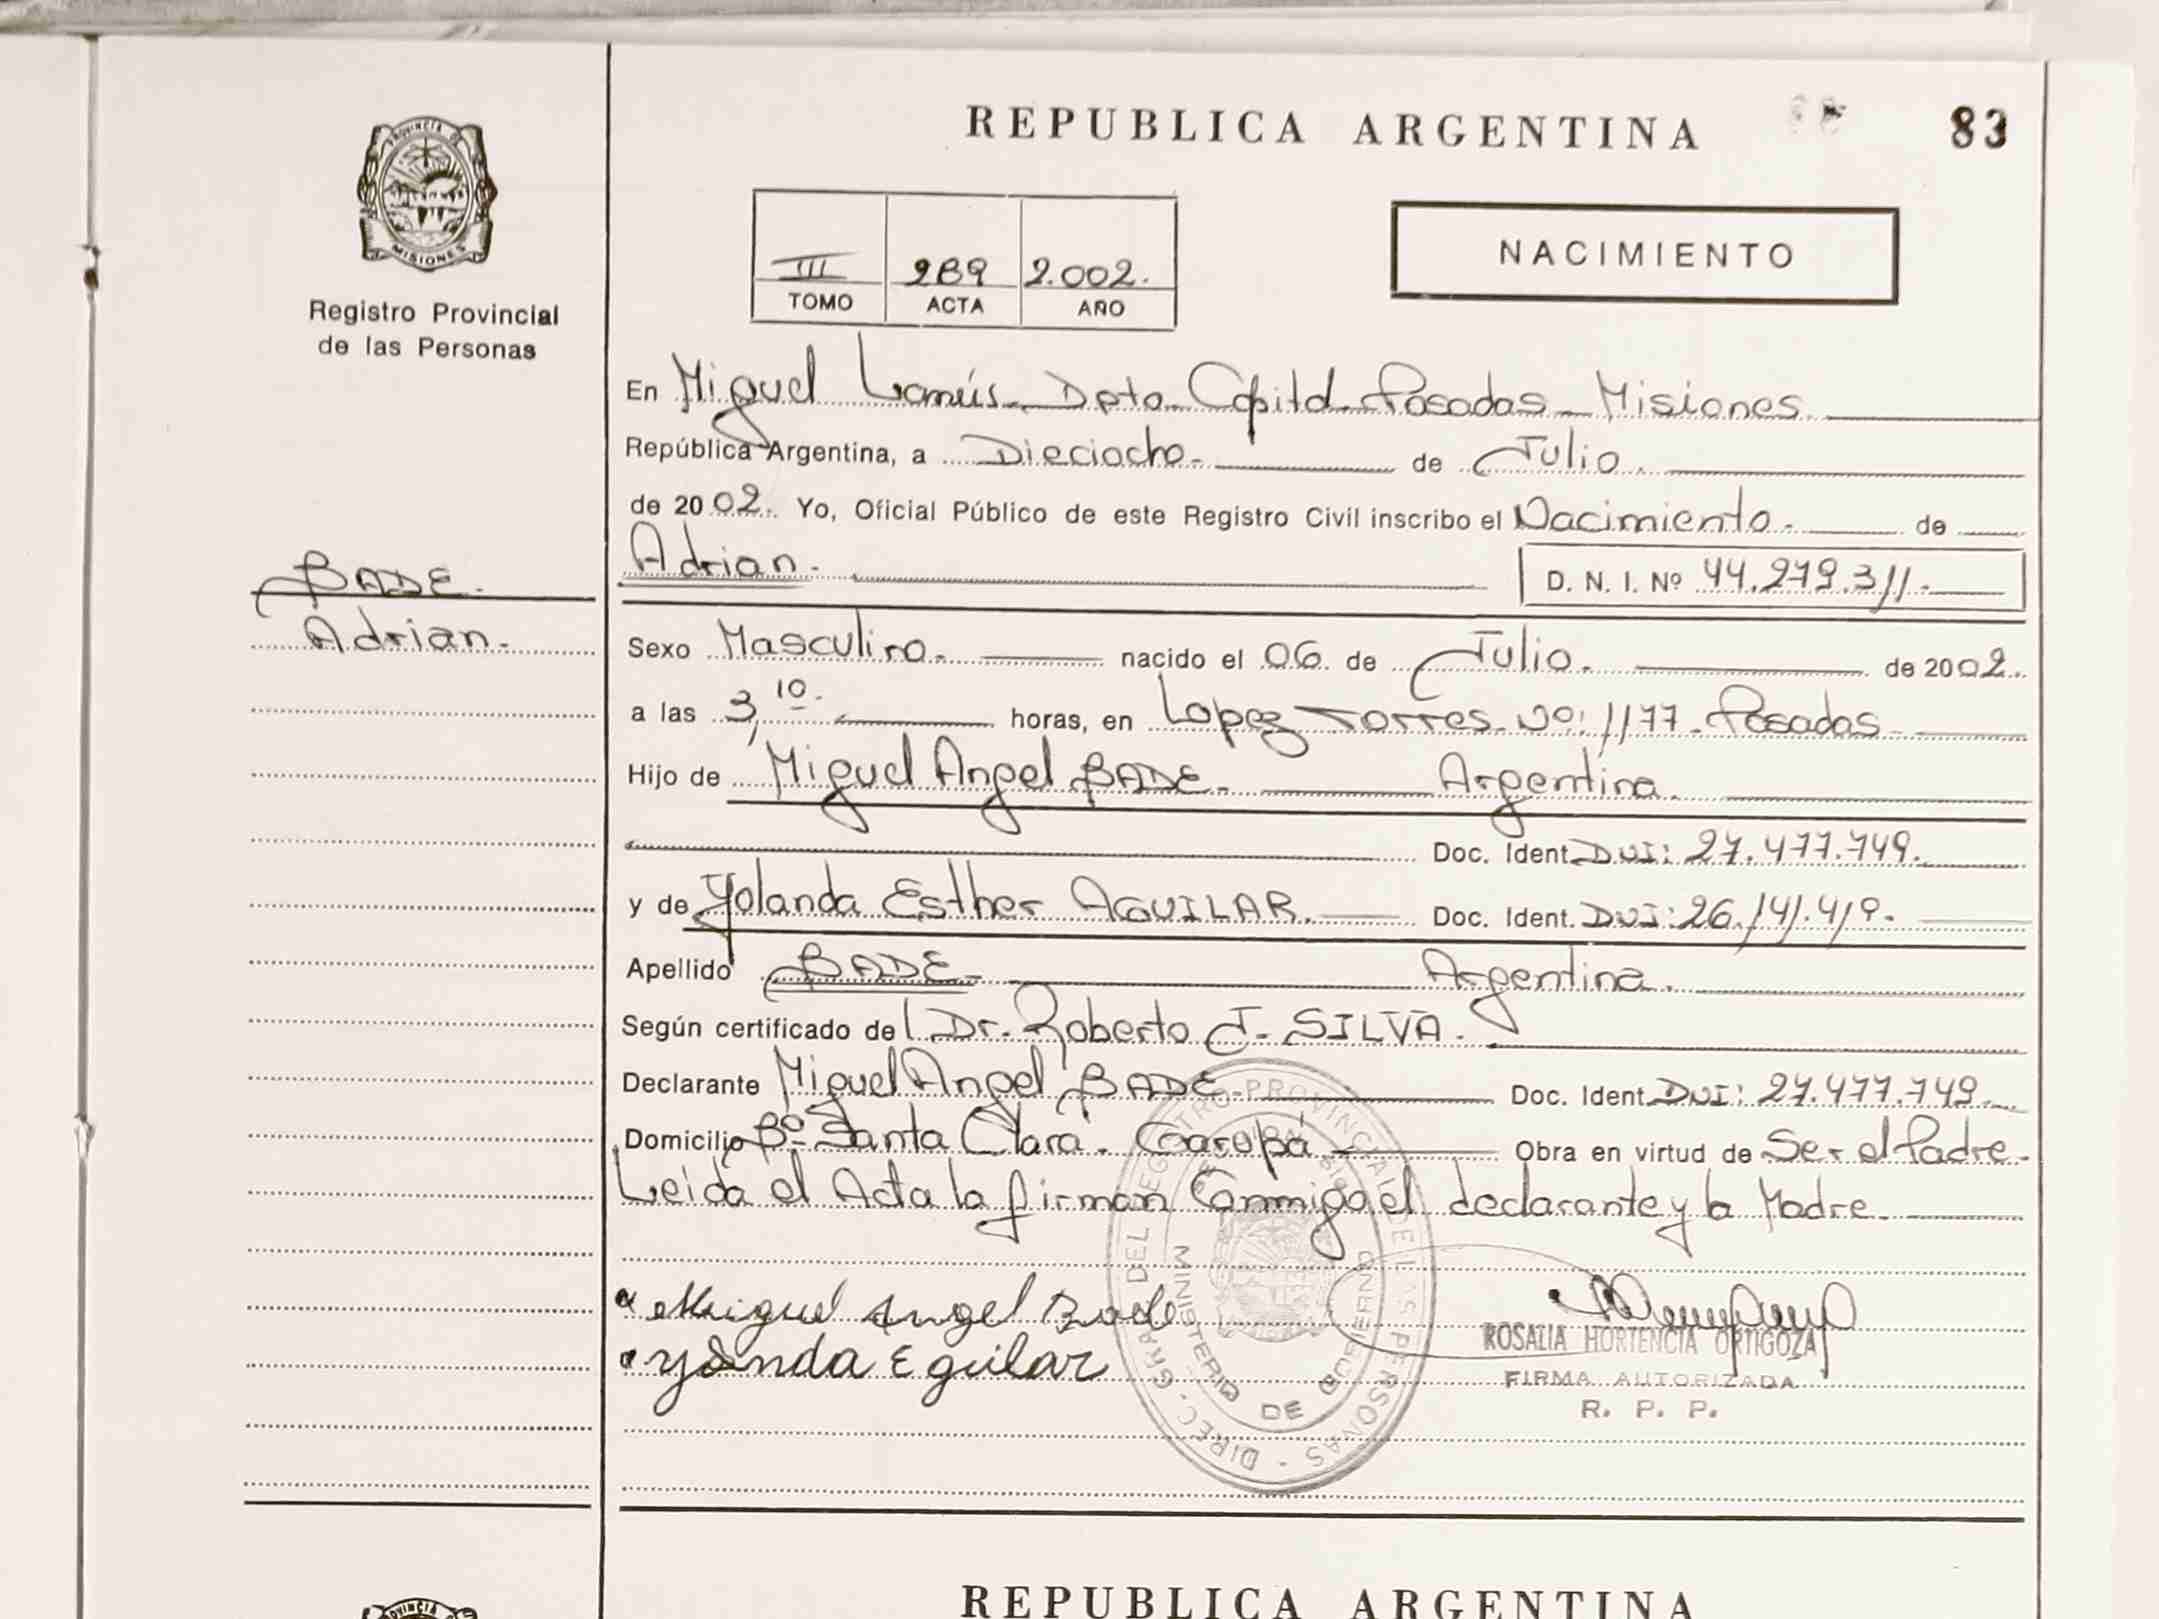 REPUBLICA ARGENTINA
83
PROVINCIA DE MISIONES
Registro Provincial
de las Personas
III 289 2.002.
TOMO ACTA AÑO
NACIMIENTO
En Miguel Lanús - Dpto. Capital - Posadas - Misiones.
República Argentina, a Dieciocho. de Julio.
de 2002. Yo, Oficial Público de este Registro Civil inscribo el Nacimiento. de
Adrian. D. N. I. Nº 44.279.311.
BADE.
Adrian.
Sexo Masculino. nacido el 06 de Julio. de 2002.
a las 3,10. horas, en Lopez Torres Nº: 1177 - Posadas
Hijo de Miguel Angel BADE. Argentina.
Doc. Ident. DNI: 27.477.749.
y de Yolanda Esther AGUILAR. Doc. Ident. DNI: 26.141.419.
Apellido BADE Argentina.
Según certificado del Dr. Roberto J. SILVA.
Declarante Miguel Angel BADE Doc. Ident. DNI: 27.477.749.
Domicilio Bº Santa Clara. Garupá Obra en virtud de Ser el Padre.
Leida el Acta la firman Conmigo, el declarante y la Madre.
Miguel Angel Bade
ROSALIA HORTENCIA ORTIGOZA
FIRMA AUTORIZADA
R. P. P.
DIREC. GRAL DEL REGISTRO PROVINCIAL DE LAS PERSONAS
MINISTERIO DE GOBIERNO
REPUBLICA ARGENTINA